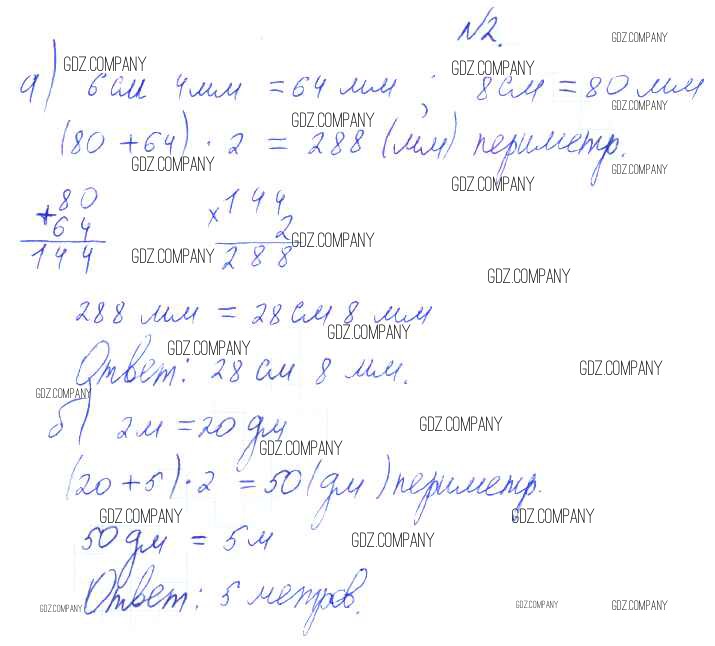 №2.
GDZ.COMPANY
а) 6 см 4 мм = 64 мм ; 8 см = 80 мм
GDZ.COMPANY GDZ.COMPANY
GDZ.COMPANY
GDZ.COMPANY
(80 + 64) · 2 = 288 (мм) периметр.
GDZ.COMPANY GDZ.COMPANY
GDZ.COMPANY
+80 ×144
64 2
144 288
GDZ.COMPANY GDZ.COMPANY
GDZ.COMPANY
288 мм = 28 см 8 мм
GDZ.COMPANY
GDZ.COMPANY GDZ.COMPANY
Ответ: 28 см 8 мм.
GDZ.COMPANY
б) 2 м = 20 дм
GDZ.COMPANY
GDZ.COMPANY
(20 + 5) · 2 = 50 (дм) периметр.
GDZ.COMPANY GDZ.COMPANY
50 дм = 5 м
GDZ.COMPANY
Ответ: 5 метров.
GDZ.COMPANY GDZ.COMPANY GDZ.COMPANY